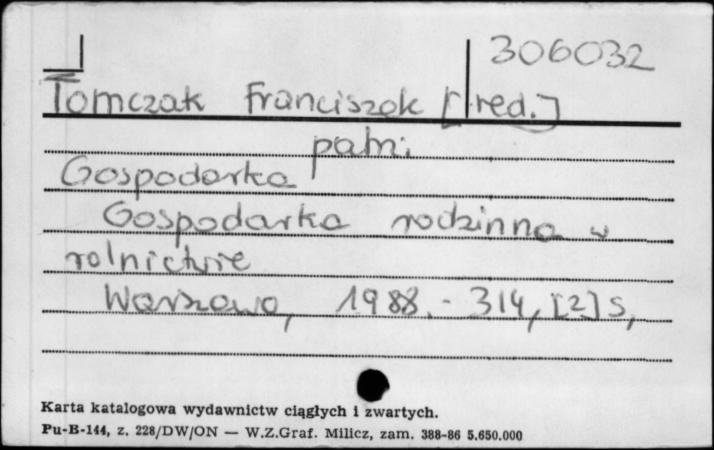 306032
Tomczak Franciszek [red.]
patrz
Gospodarka
Gospodarka rodzinna w
rolnictwie
Warszawa, 1988. - 314, [2] s,
Karta katalogowa wydawnictw ciągłych i zwartych.
Pu-B-144, z. 228/DW/ON — W.Z.Graf. Milicz, zam. 388-86 5.650.000